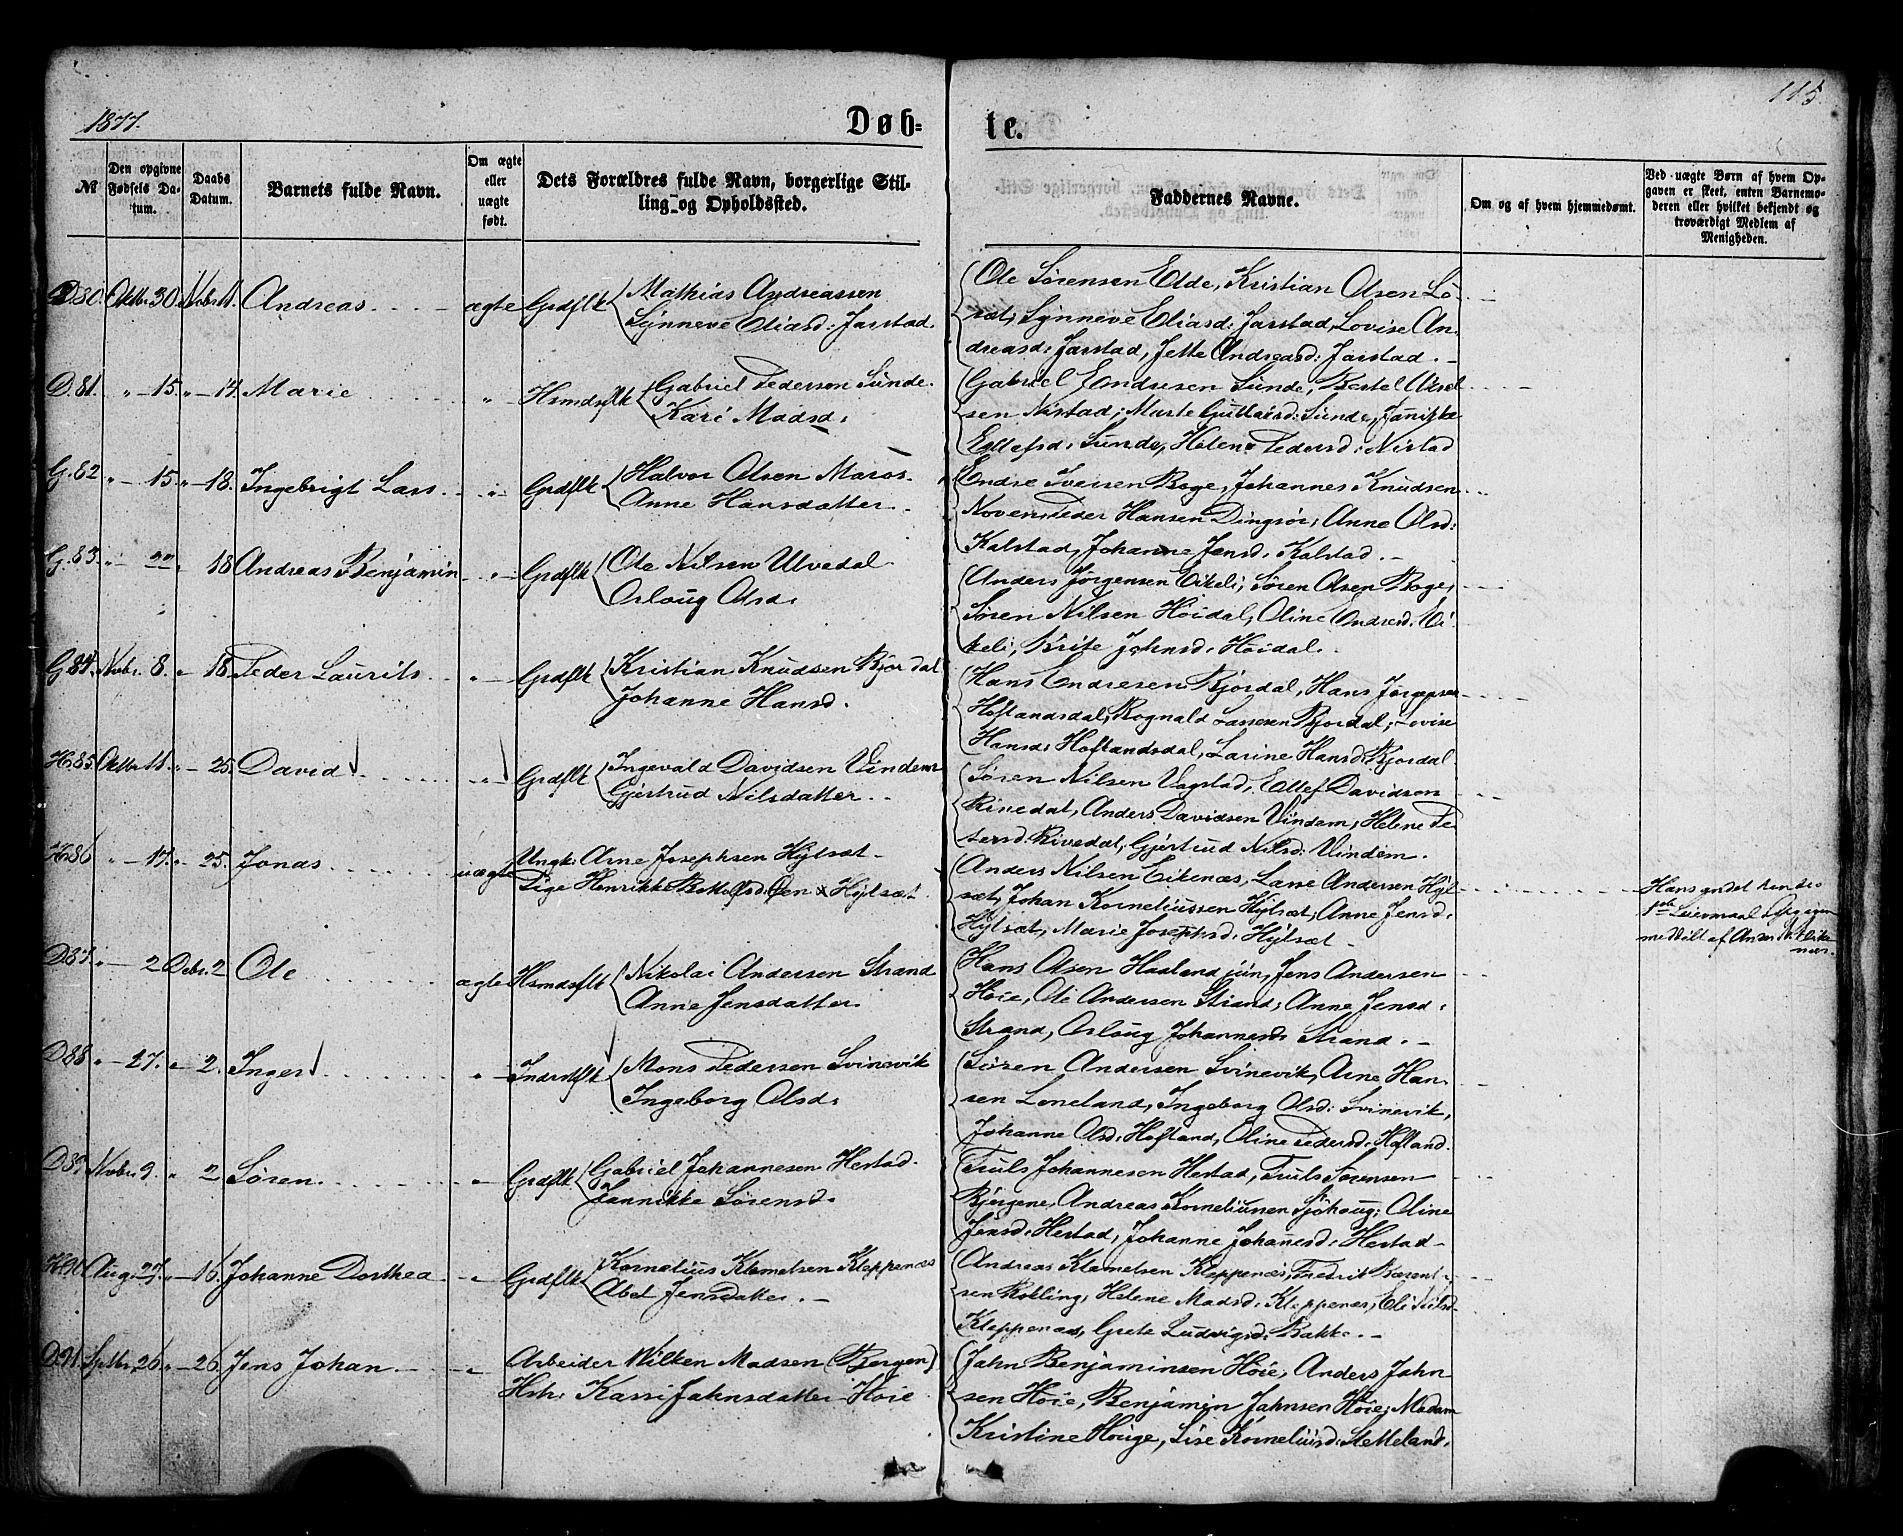 1877.
Døb=
te.
115.
№
Den opgivne Fødsels Da-
tum.
Daabs Datum.
Barnets fulde Navn.
Om ægte eller uægte født.
Dets Forældres fulde Navn, borgerlige Stil-
ling og Opholdssted.
Faddernes Navne.
Om og af hvem hjemmedømt.
Ved uægte Børn af hvem Op-
gaven er skeet, enten Barnemo-
deren eller hvilket bekjendt og
troværdigt Medlem af
Menigheden.
D.80. Oktbr. 30 Novbr. 11. Andreas ægte Grdflk Mathias Andreassen
Synneve Eliasd: Jarstad.
Ole Sørensen Elde, Kristian Olsen Lø-
sæt, Synneve Eliasd: Jarstad, Lovise An-
dreasd: Jarstad, Jette Andreasd: Jarstad.
D.81. " 15. " 14. Marie " Hsmdsflk Gabriel Pedersen Sunde.
Kari Madsd:
Gabriel Endresen Sunde, Bertel
sen Nistad, Marte Guttormsd: Sunde, Jannikke
Ellefsd: Sunde, Helene Pedersd: Nistad
G.82 " 15. " 18. Ingebrigt Lars " Grdflk Halvor Olsen
Anne Hansdatter.
Endre Iversen Boge, Johannes Knudsen
Noven, Peder Hansen Dingsør, Anne Olsd:
Kalstad, Johanne Jensd: Kalstad.
G.83. " 22 " 18 Andreas Benjamin " Grdflk Ole Nilsen Ulvedal
Orloug Olsd:
Anders Jørgensen Eikeli, Søren Olsen Boge,
Søren Nilsen Høidal, Oline Andersd: Ei-
keli, Brite Johnsd: Høidal.
G.84. Novbr. 8. " 18. Peder Laurits " Grdflk Kristian Knudsen Bjordal
Johanne Hansd.
Hans Endresen Bjordal, Hans Jørgensen
Hoflandsdal, Rognald Larsen Bjordal, Lovise
Hansd: Hoflandsdal, Larine Hansd: Bjordal
H.85. Oktbr. 11. " 25. David " Grdflk Ingevald Davidsen Vindem
Gjertrud Nilsdatter.
Søren Nilsen Vagstad, Ellef Davidsen
Rivedal, Anders Davidsen Vindem, Helene Pe-
dersd: Rivedal, Gjertrud Nilsd: Vindem.
H.86 " 17. " 25. Jonas uægte Ungk: Arne Josephsen Hylsæt
Pige Henrikke Hylsæt.
Anders Nilsen Eikenæs, Lasse Andersen Hyl-
sæt, Johan Korneliussen Hylsæt, Anne Jensd:
Hylsæt, Marie Josephsd: Hylsæt
Hans
Leiermaal
af Anders N. Eike-
næs
D.87. " 2 Debr. 2 Ole ægte Hsmdsflk Nikolai Andersen Strand
Anne Jensdatter.
Hans Olsen Haaland jun, Jens Andersen
Høie, Ole Andersen Strand, Anne Jensd:
Strand, Orloug Johannesd: Strand.
D.88 " 27. " 2. Inger " Indrstflk Mons Pedersen Svinevik
Ingeborg Olsd:
Søren Andersen Svinevik, Arne Han-
sen Loneland, Ingeborg Olsd: Svinevik,
Johanne Olsd: Hofland, Oline Pedersd: Hofland.
D.89. Novbr. 9. " 2 Søren. " Grdflk Gabriel Johannesen Hestad.
Jannikke Sørensd.
Truls Johannesen Hestad, Truls Sørensen
Bjergene, Andreas Korneliussen Sjøhaug, Oline
Jensd: Hestad, Johanne Johanesd: Hestad
H.90. Aug. 27. " 16. Johanne Dorthea " Grdflk Kornelius Klemetsen Kleppenæs
Abel Jensdatter.
Andreas Klemetsen Kleppenæs, Fredrik Bærent-
sen Kobling, Helene Madsd: Kleppenæs, Eli Nilsd
Kleppenæs, Grete Ludvigsd: Bakke.
D.91. Septbr. 26. " 26. Jens Johan " Arbeider Wilken Madsen (Bergen)
Hstr: Karri Jahnsdatter Høie
Jahn Benjaminsen Høie, Anders Jahn-
sen Høie, Benjamin Jahnsen Høie, Madam
Kristine Houge, Lise Korneliusd: Stetteland.